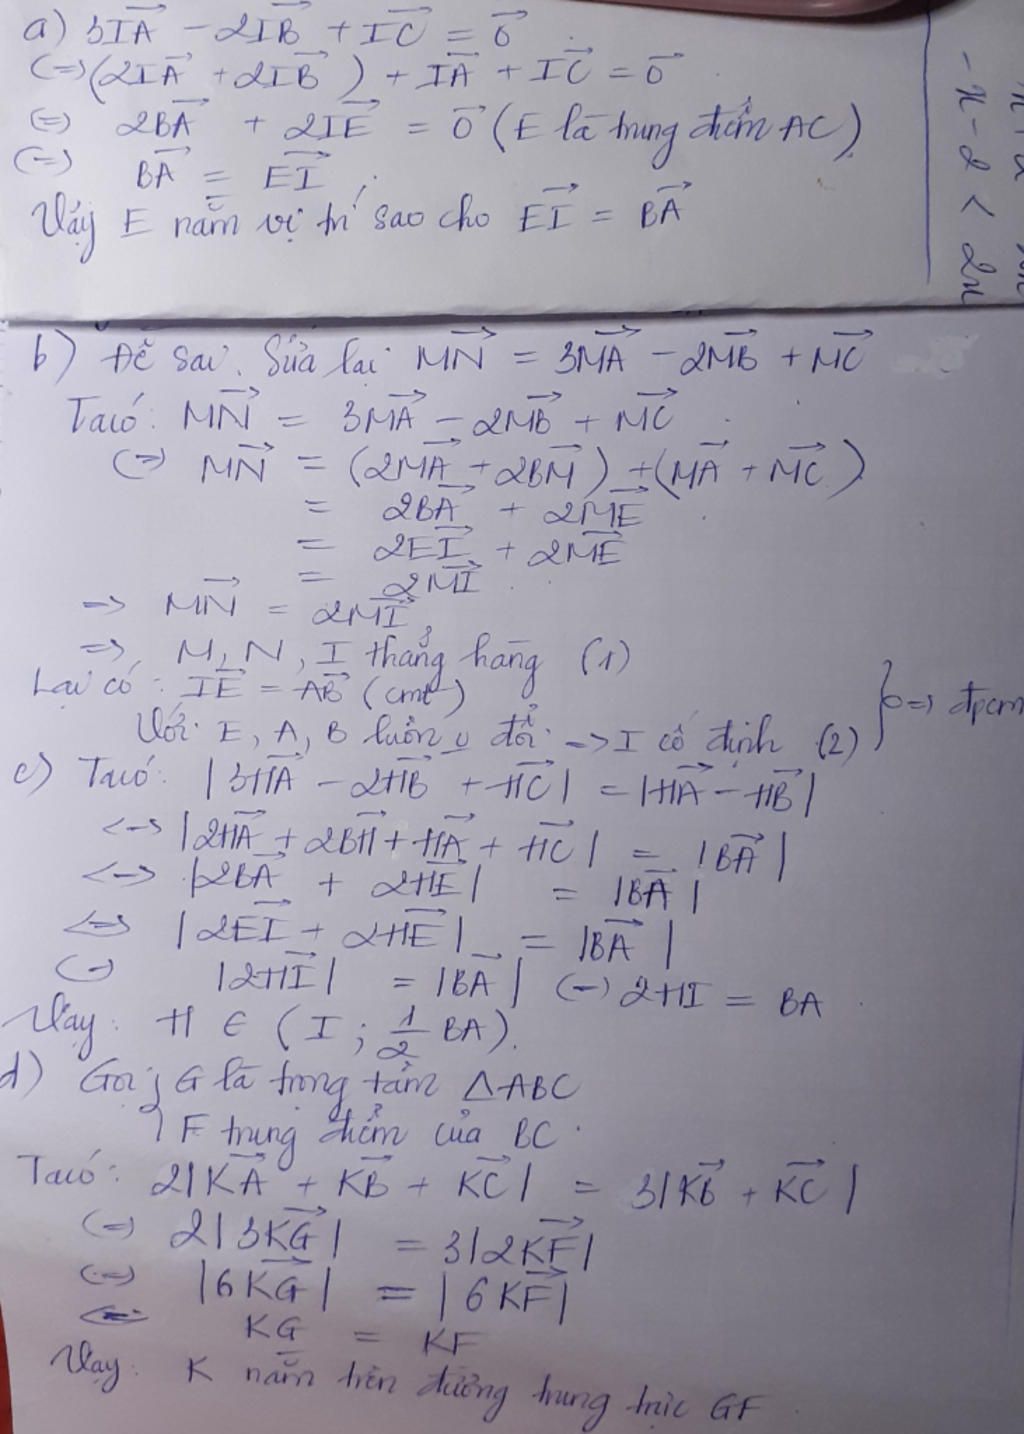 a) 3IA→ - 2IB→ + IC→ = 0→
(=) (2IA→ + 2IB→) + IA→ + IC→ = 0→
(=) 2BA→ + 2IE→ = 0→ (E là trung điểm AC)
(=) BA→ = EI→
Vậy E nằm vị trí sao cho EI→ = BA→
- x - 2 < 2x
b) Đề sai. Sửa lại MN→ = 3MA→ - 2MB→ + MC→
Ta có: MN→ = 3MA→ - 2MB→ + MC→
(=) MN→ = (2MA→ + 2BM→) + (MA→ + MC→)
= 2BA→ + 2ME→
= 2EI→ + 2ME→
= 2MI→
=> MN→ = 2MI→
=> M, N, I thẳng hàng (1)
Lại có: IE→ = AB→ (cmt)
Với E, A, B luôn o đổi => I cố định (2) } => đpcm
c) Ta có: |3HA→ - 2HB→ + HC→| = |HA→ - HB→|
<=> |2HA→ + 2BH→ + HA→ + HC→| = |BA→|
<=> |2BA→ + 2HE→| = |BA→|
<=> |2EI→ + 2HE→| = |BA→|
(=) |2HI→| = |BA→| (=) 2HI = BA
Vậy: H ∈ (I; 1/2 BA).
d) Gọi { G là trọng tâm △ABC
F trung điểm của BC.
Ta có: 2|KA→ + KB→ + KC→| = 3|KB→ + KC→|
(=) 2|3KG→| = 3|2KF→|
(=) |6KG→| = |6KF→|
<=> KG = KF
Vậy: K nằm trên đường trung trực GF